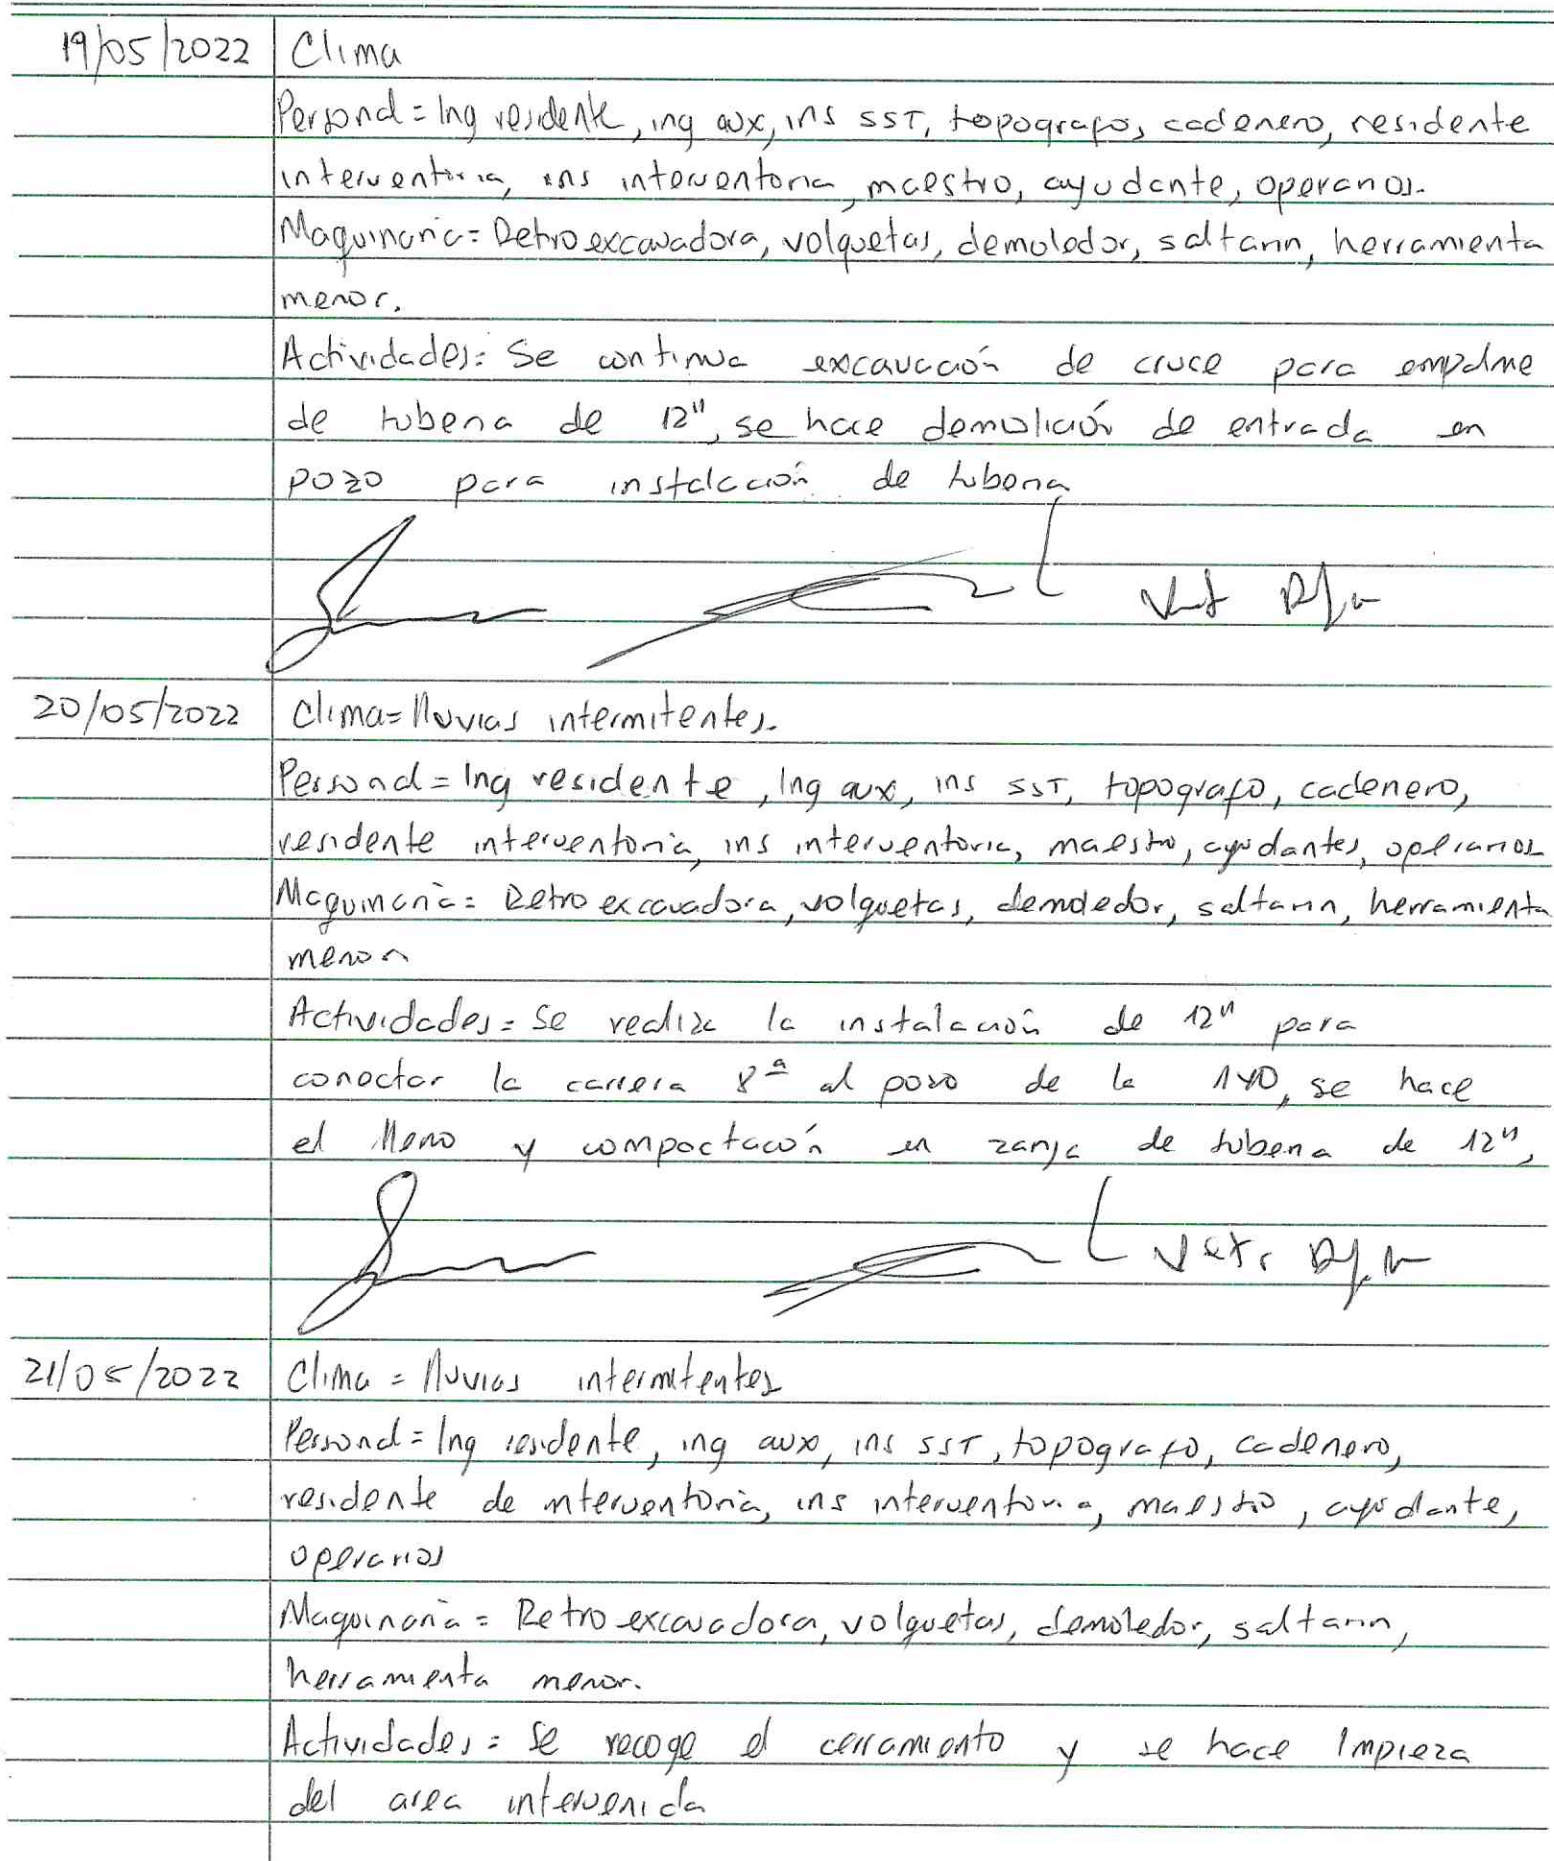 19/05/2022 Clima
Personal = Ing residente, ing aux, ins SST, topografo, cadenero, residente
interventoria, ins interventoria, maestro, ayudante, operarios.
Maquinaria = Retroexcavadora, volquetas, demoledor, saltarin, herramienta
menor.
Actividades: Se continua excavación de cruce para empalme
de tuberia de 12", se hace demolición de entrada en
pozo para instalación de tuberia
20/05/2022 Clima = lluvias intermitentes.
Personal = Ing residente, Ing aux, ins SST, topografo, cadenero,
residente interventoria, ins interventoria, maestro, ayudantes, operarios
Maquinaria = Retroexcavadora, volquetas, demoledor, saltarin, herramienta
menor
Actividades = Se realiza la instalación de 12" para
conectar la carrera 8ª al pozo de la se hace
el lleno y compactación en zanja de tuberia de 12",
21/05/2022 Clima = lluvias intermitentes
Personal = Ing residente, ing aux, ins SST, topografo, cadenero,
residente de interventoria, ins interventoria, maestro, ayudante,
operarios
Maquinaria = Retroexcavadora, volquetas, demoledor, saltarin,
herramienta menor.
Actividades = Se recoge el cerramiento y se hace limpieza
del area intervenida